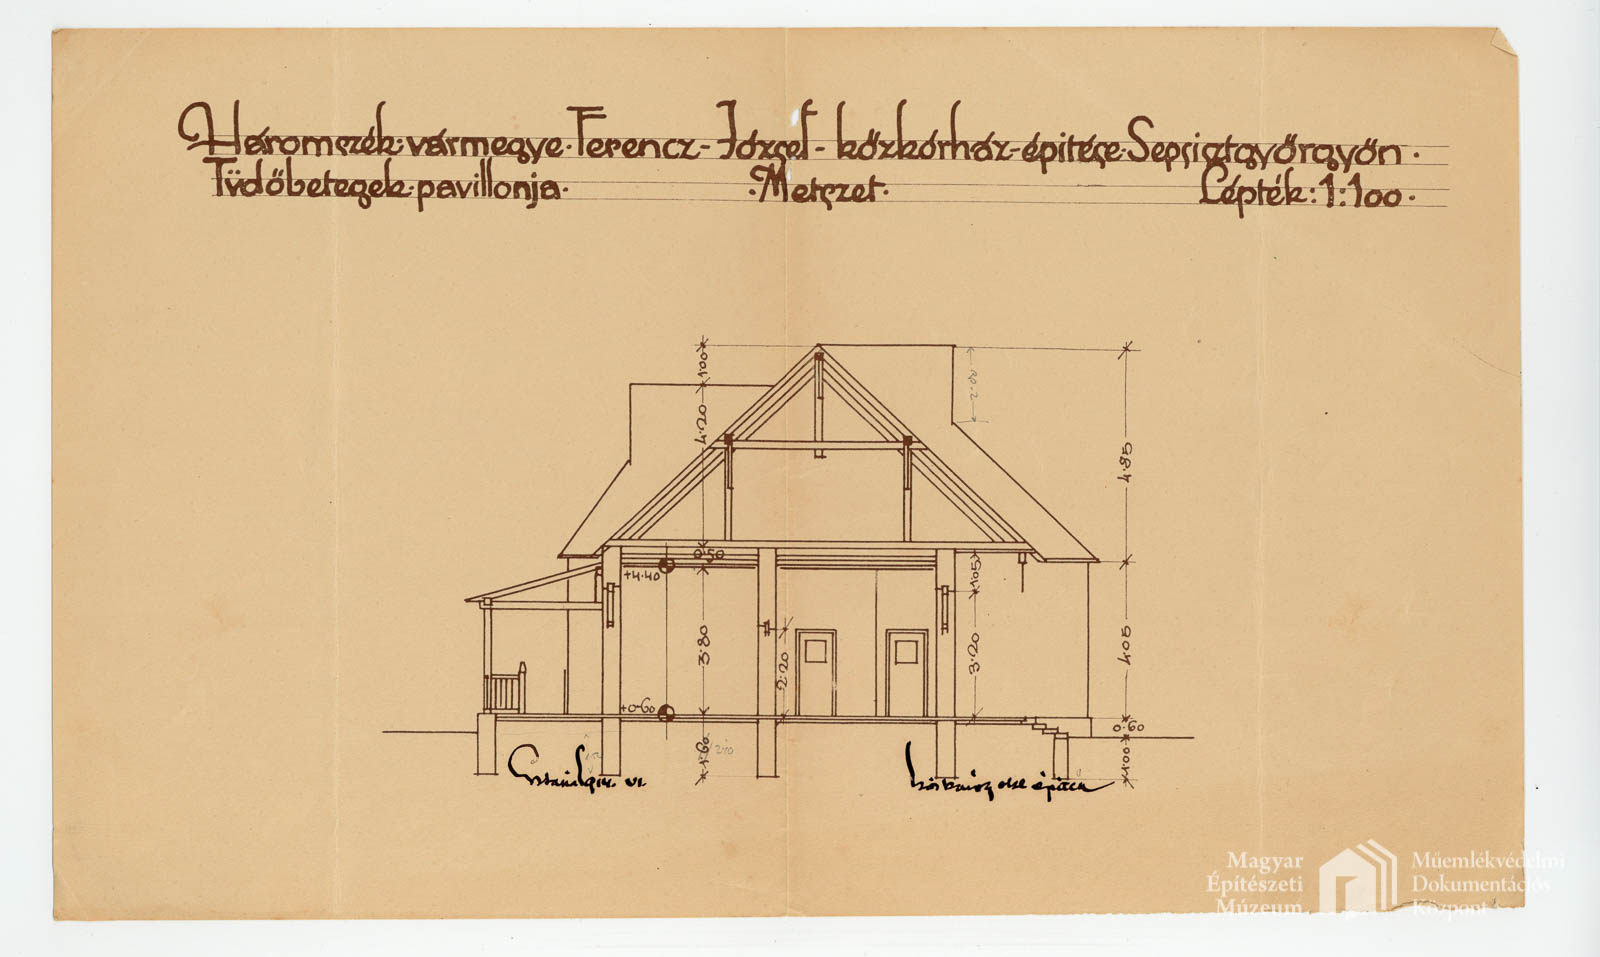 Háromszék·vármegye·Ferencz-József-közkórház-építése·Sepsisztgyörgyön·
Tüdőbetegek·pavillonja· ·Metszet· Lépték:1:100·
1·00
4·20
2·00
4·85
0·50
+4·40
1·05
3·80
2·20
3·20
4·05
+0·60
0·60
1·60
1·00
Magyar
Építészeti
Múzeum
Műemlékvédelmi
Dokumentációs
Központ